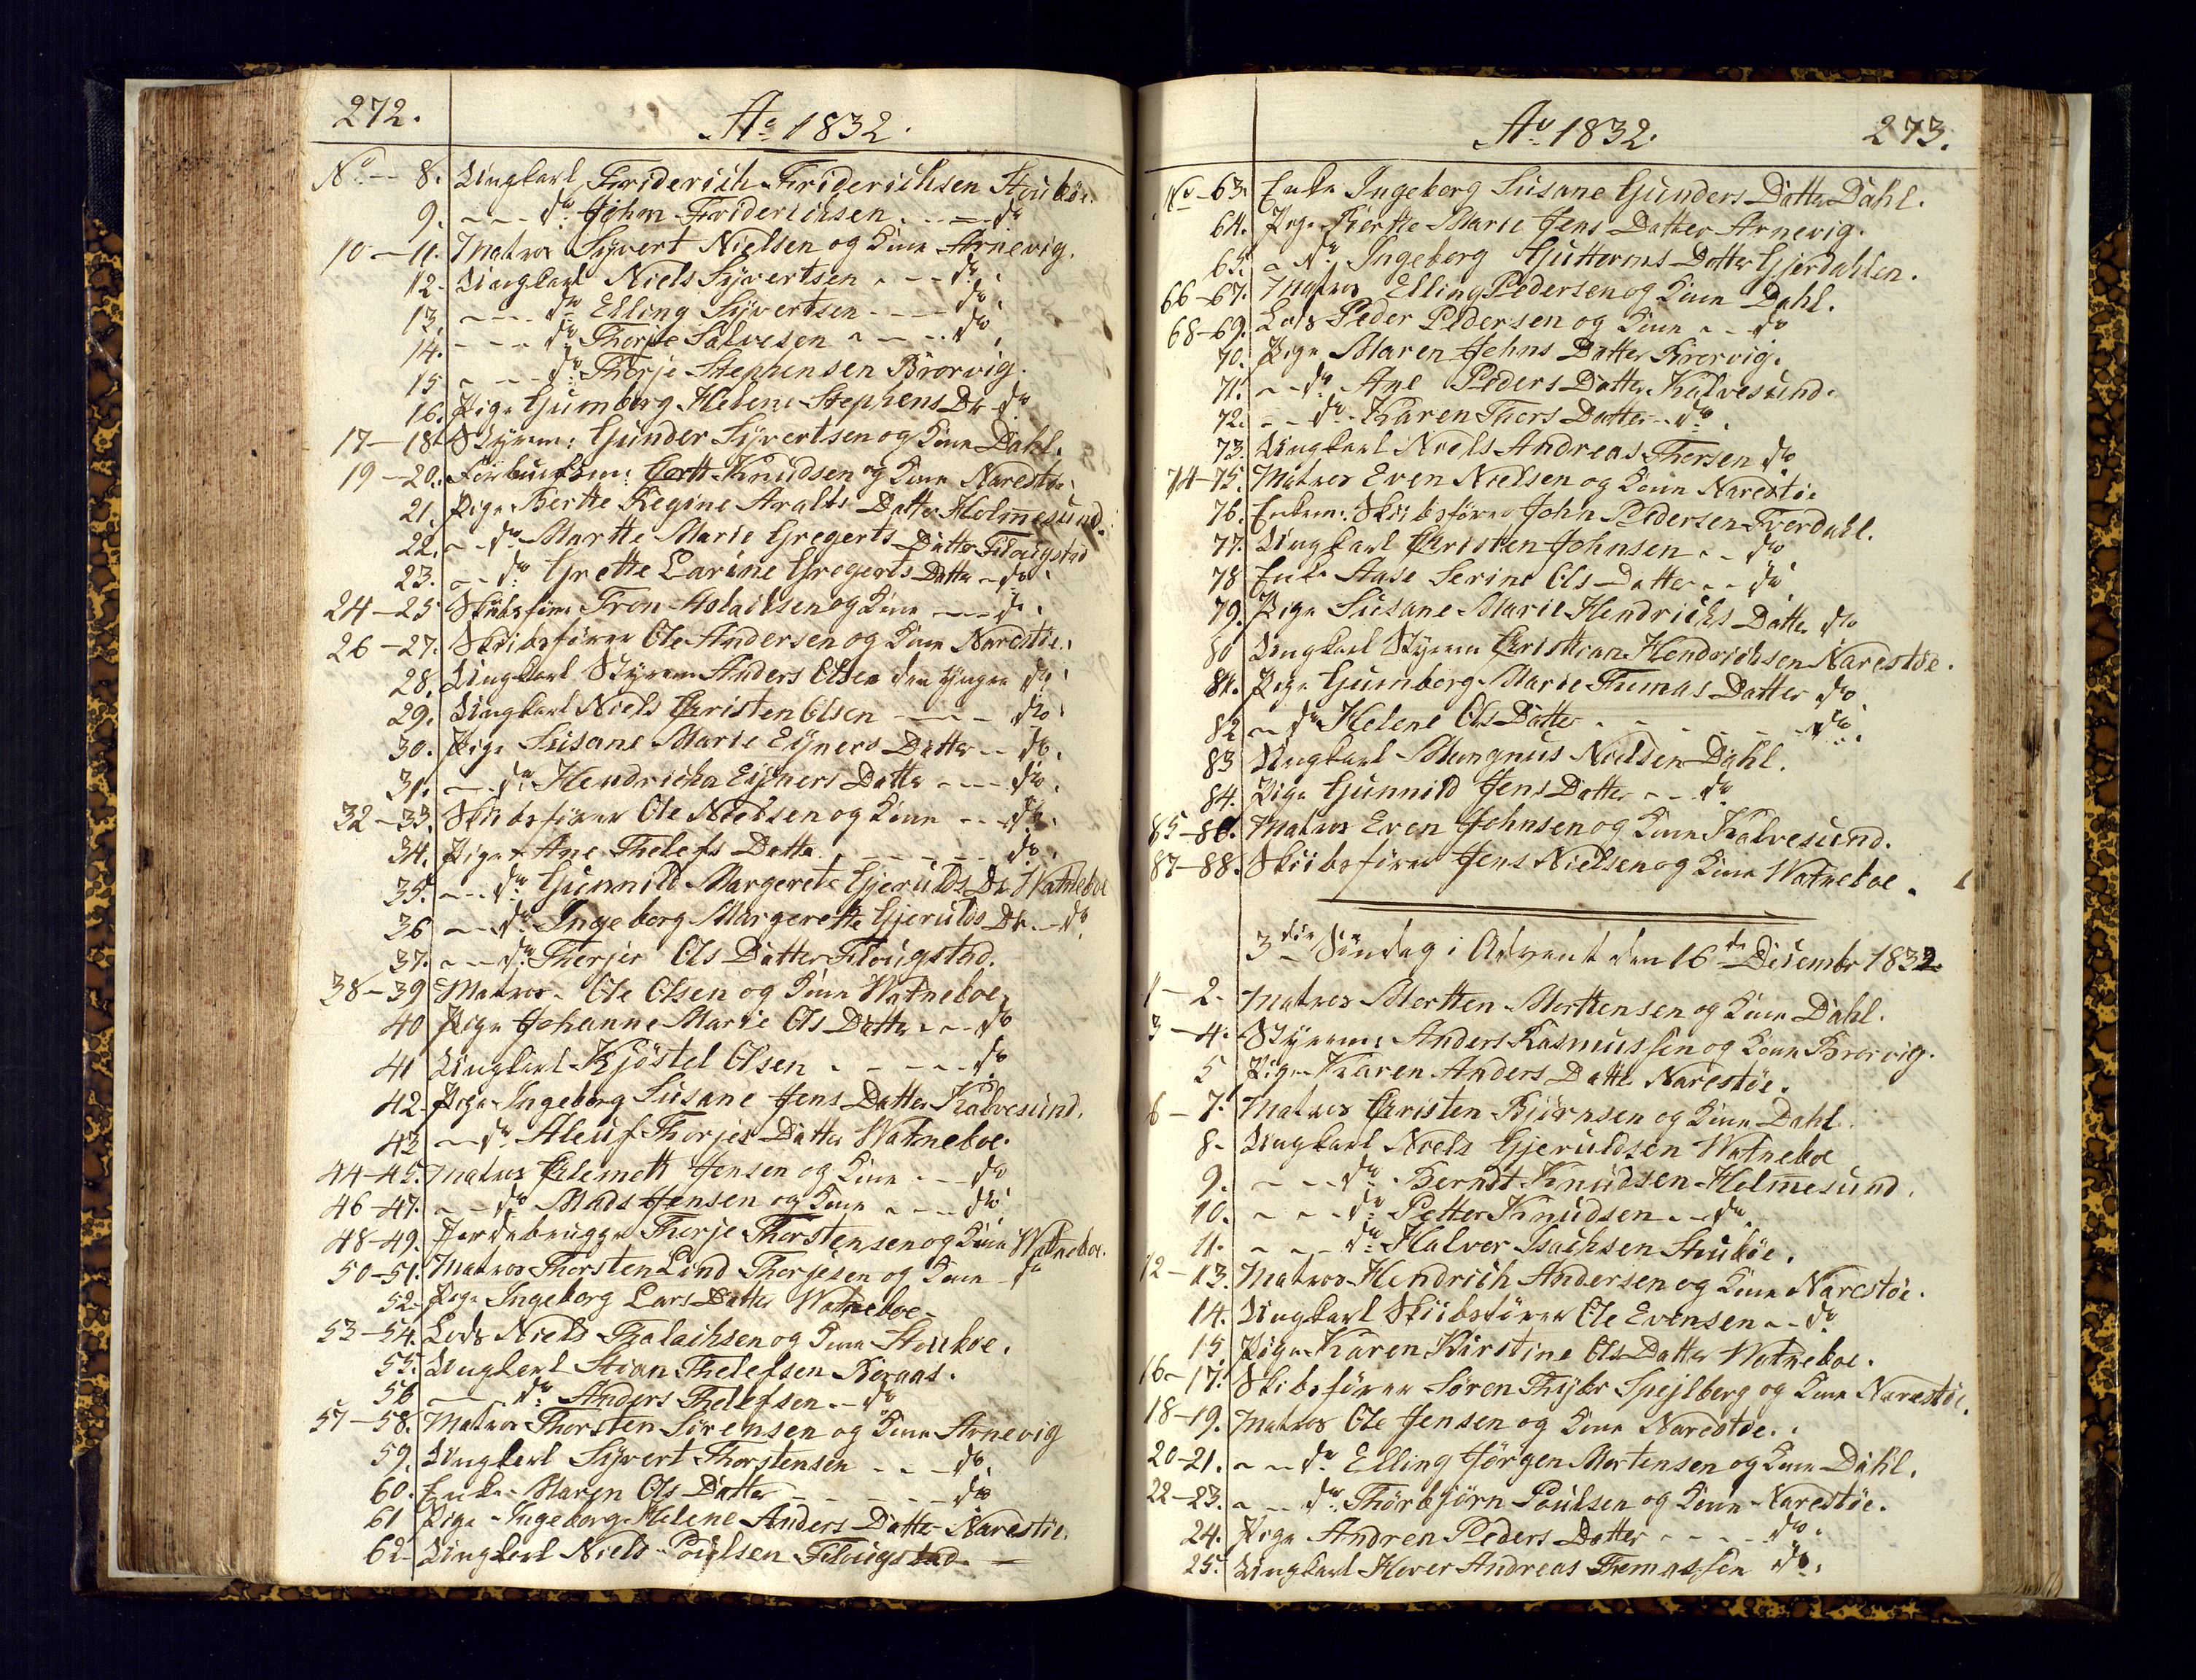 272.
Ao 1832.
No - 8. Ungkarl Friderich Friderichsen Stoubøe.
9. - - - do John Friderichsen - - - do
10-11. Matros Syvert Nielsen og Kone Arnevig.
12. Ungkarl Niels Syvertsen - - - do.
13. - - - do Elling Syvertsen - - - do.
14. - - - do Thorje Salvesen - - - do.
15 - - - do Thorje Stephensen Brørvig.
16. Pige Gumborg Helene Stephens Dr do
17-18. Styrm: Gunder Syvertsen og Kone Dahl.
19-20. Knudsen og Kone Narestøe.
21. Pige Berthe Regine Aralts Datter Holmesund.
22. - do Marthe Marie Gregerts Datter Flougstad
23. - - do Grethe Larine Gregerts Datter - do.
24-25 Skibsfører Tron og Kone - - do.
26-27. Skibsfører Ole Andersen og Kone Narestøe.
28. Ungkarl Styrm Anders Olsen den Yngre do.
29. Ungkarl Niels Christen Olsen - - - do.
30. Pige Susane Marie Eyners Datter - - do.
31. - - do Hendricha Eyners Datter - - - do.
32-33. Skibsfører Ole Nielsen og Kone - - do.
34. Pige Ane Thelefs Datter - - - - do.
35. - - do Gunnild Margerete Gjerulds Dr Watneboe
36 - - do Ingeborg Margerethe Gjerulds Dr - do
37. - - do Therjer Ols Datter Flougstad.
38-39 Matros Ole Olsen og Kone Watneboe.
40 Pige Johanne Marie Ols Datter - - do
41 Ungkarl Kjøstel Olsen - - - - do
42. Pige Ingeborg Susane Jens Datter Kalvesund.
43 - - do Aleuf Thorjes Datter Watneboe.
44-45. Matros Clemett Jensen og Kone - - do
46-47. - - do Mads Jensen og Kone - - - do
48-49. Jordebrugger Thorje Thorstensen og Kone Watneboe.
50-51. Matros Thorsten Lind Thorjesen og Kone - do
52. Pige Ingeborg Lars Datter Watneboe.
53-54. Lods Niels og Kone Stoubøe.
55. Ungkarl Stian Thelefsen Boraas.
56 - - - do Anders Thelefsen - - do
57-58. Matros Thorsten Sørensen og Kone Arnevig
59. Ungkarl Syvert Thorstensen - - - do.
60. Enke Maren Ols Datter - - - - - do
61 Pige Ingeborg Helene Anders Datter Narestøe.
62. Ungkarl Niels Poulsen Flougstad -
Ao 1832.
273.
No - 63. Enke Ingeborg Susane Gunders Datter Dahl.
64. Pige Bierthe Marie Jens Datter Arnevig.
65. - do Ingeborg Guttorms Datter Gjerdahlen.
66-67. Matros Elling Pedersen og Kone Dahl.
68-69. Lods Peder Pedersen og Kone - - do
70. Pige Maren Johns Datter Brørvig.
71. - - do Ane Peders Datter Kalvesund.
72. - - do Karen Thors Datter - - do.
73. Ungkarl Niels Andreas Thorsen do
74-75. Matros Even Nielsen og Kone Narestøe
76. Enkem: Skibsfører John Pedersen Tverdahl.
77. Ungkarl Christen Johnsen - - do
78 Enke Aase Serine Ols Datter - - do
79. Pige Susane Marie Hendrichs Datter do
80 Ungkarl Styrm Christian Hendrichsen Narestøe.
81. Pige Gumborg Marie Thomas Datter do
82 - do Helene Ols Datter - - - - - do.
83 Ungkarl Mangnus Nielsen Dahl.
84. Pige Gunnild Jens Datter - - do
85-86. Matros Even Johnsen og Kone Kalvesund.
87-88. Skibsfører Jens Nielsen og Kone Watneboe.
3die Søndag i Advent den 16de December 1832.
1-2. Matros Mortten Morttensen og Kone Dahl.
3-4. Styrm: Anders Rasmussen og Kone Brørvig.
5 Pige Karen Anders Datter Narestøe.
6-7. Matros Christen Biørnsen og Kone Dahl.
8. Ungkarl Niels Gjeruldsen Watneboe
9. - - - do Berndt Knudsen Holmesund.
10. - - - do Petter Knudsen - - do.
11. - - - do Halvor Isachsen Stoubøe.
12-13. Matros Hendrich Andersen og Kone Narestøe.
14. Ungkarl Skibsfører Ole Evensen - - do
15 Pige Karen Kirstine Ols Datter Watneboe.
16-17. Skibsfører Søren Spejlberg og Kone Narestøe.
18-19. Matros Ole Jensen og Kone Narestøe.
20-21. - - do Elling Jørgen Mortensen og Kone Dahl.
22-23. - - do Thorbjørn Poulsen og Kone Narestøe.
24. Pige Andren Peders Datter - - - - do.
25. Ungkarl Hover Andreas Tomassen do.